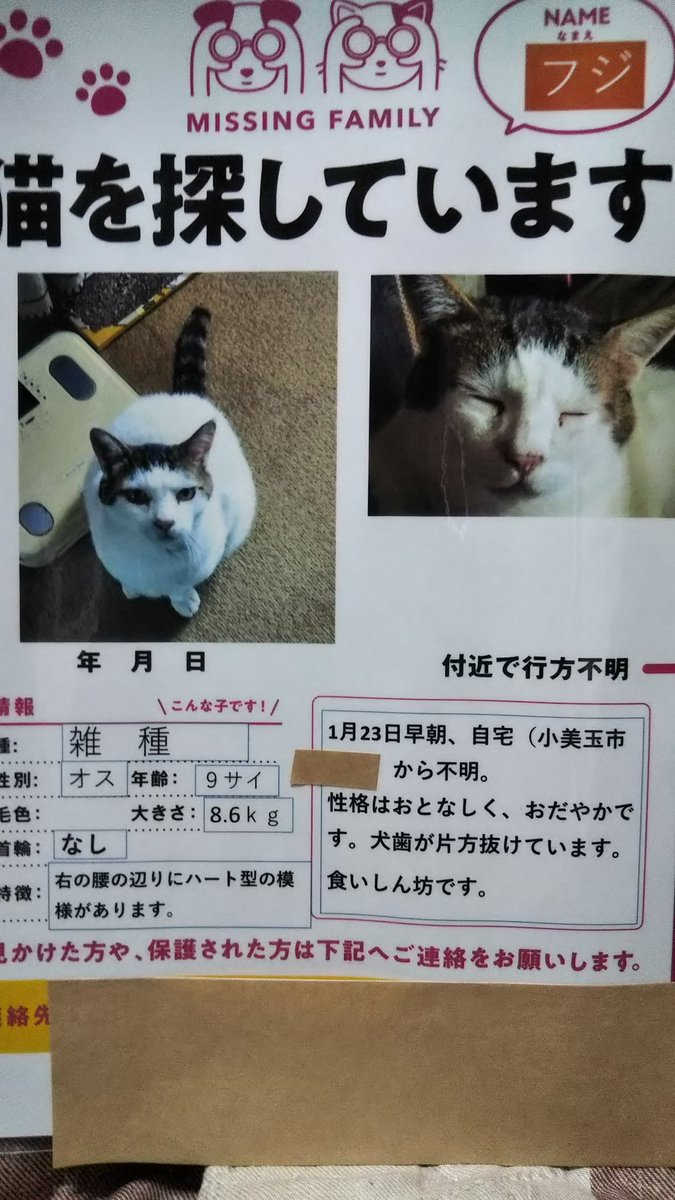 NAME
なまえ
フジ
MISSING FAMILY
猫を探しています
年 月 日
付近で行方不明
情報
こんな子です!
種: 雑 種
性別: オス 年齢: 9サイ
毛色: 大きさ: 8.6kg
首輪: なし
特徴: 右の腰の辺りにハート型の模
様があります。
1月23日早朝、自宅(小美玉市
から不明。
性格はおとなしく、おだやかで
す。犬歯が片方抜けています。
食いしん坊です。
見かけた方や、保護された方は下記へご連絡をお願いします。
連絡先